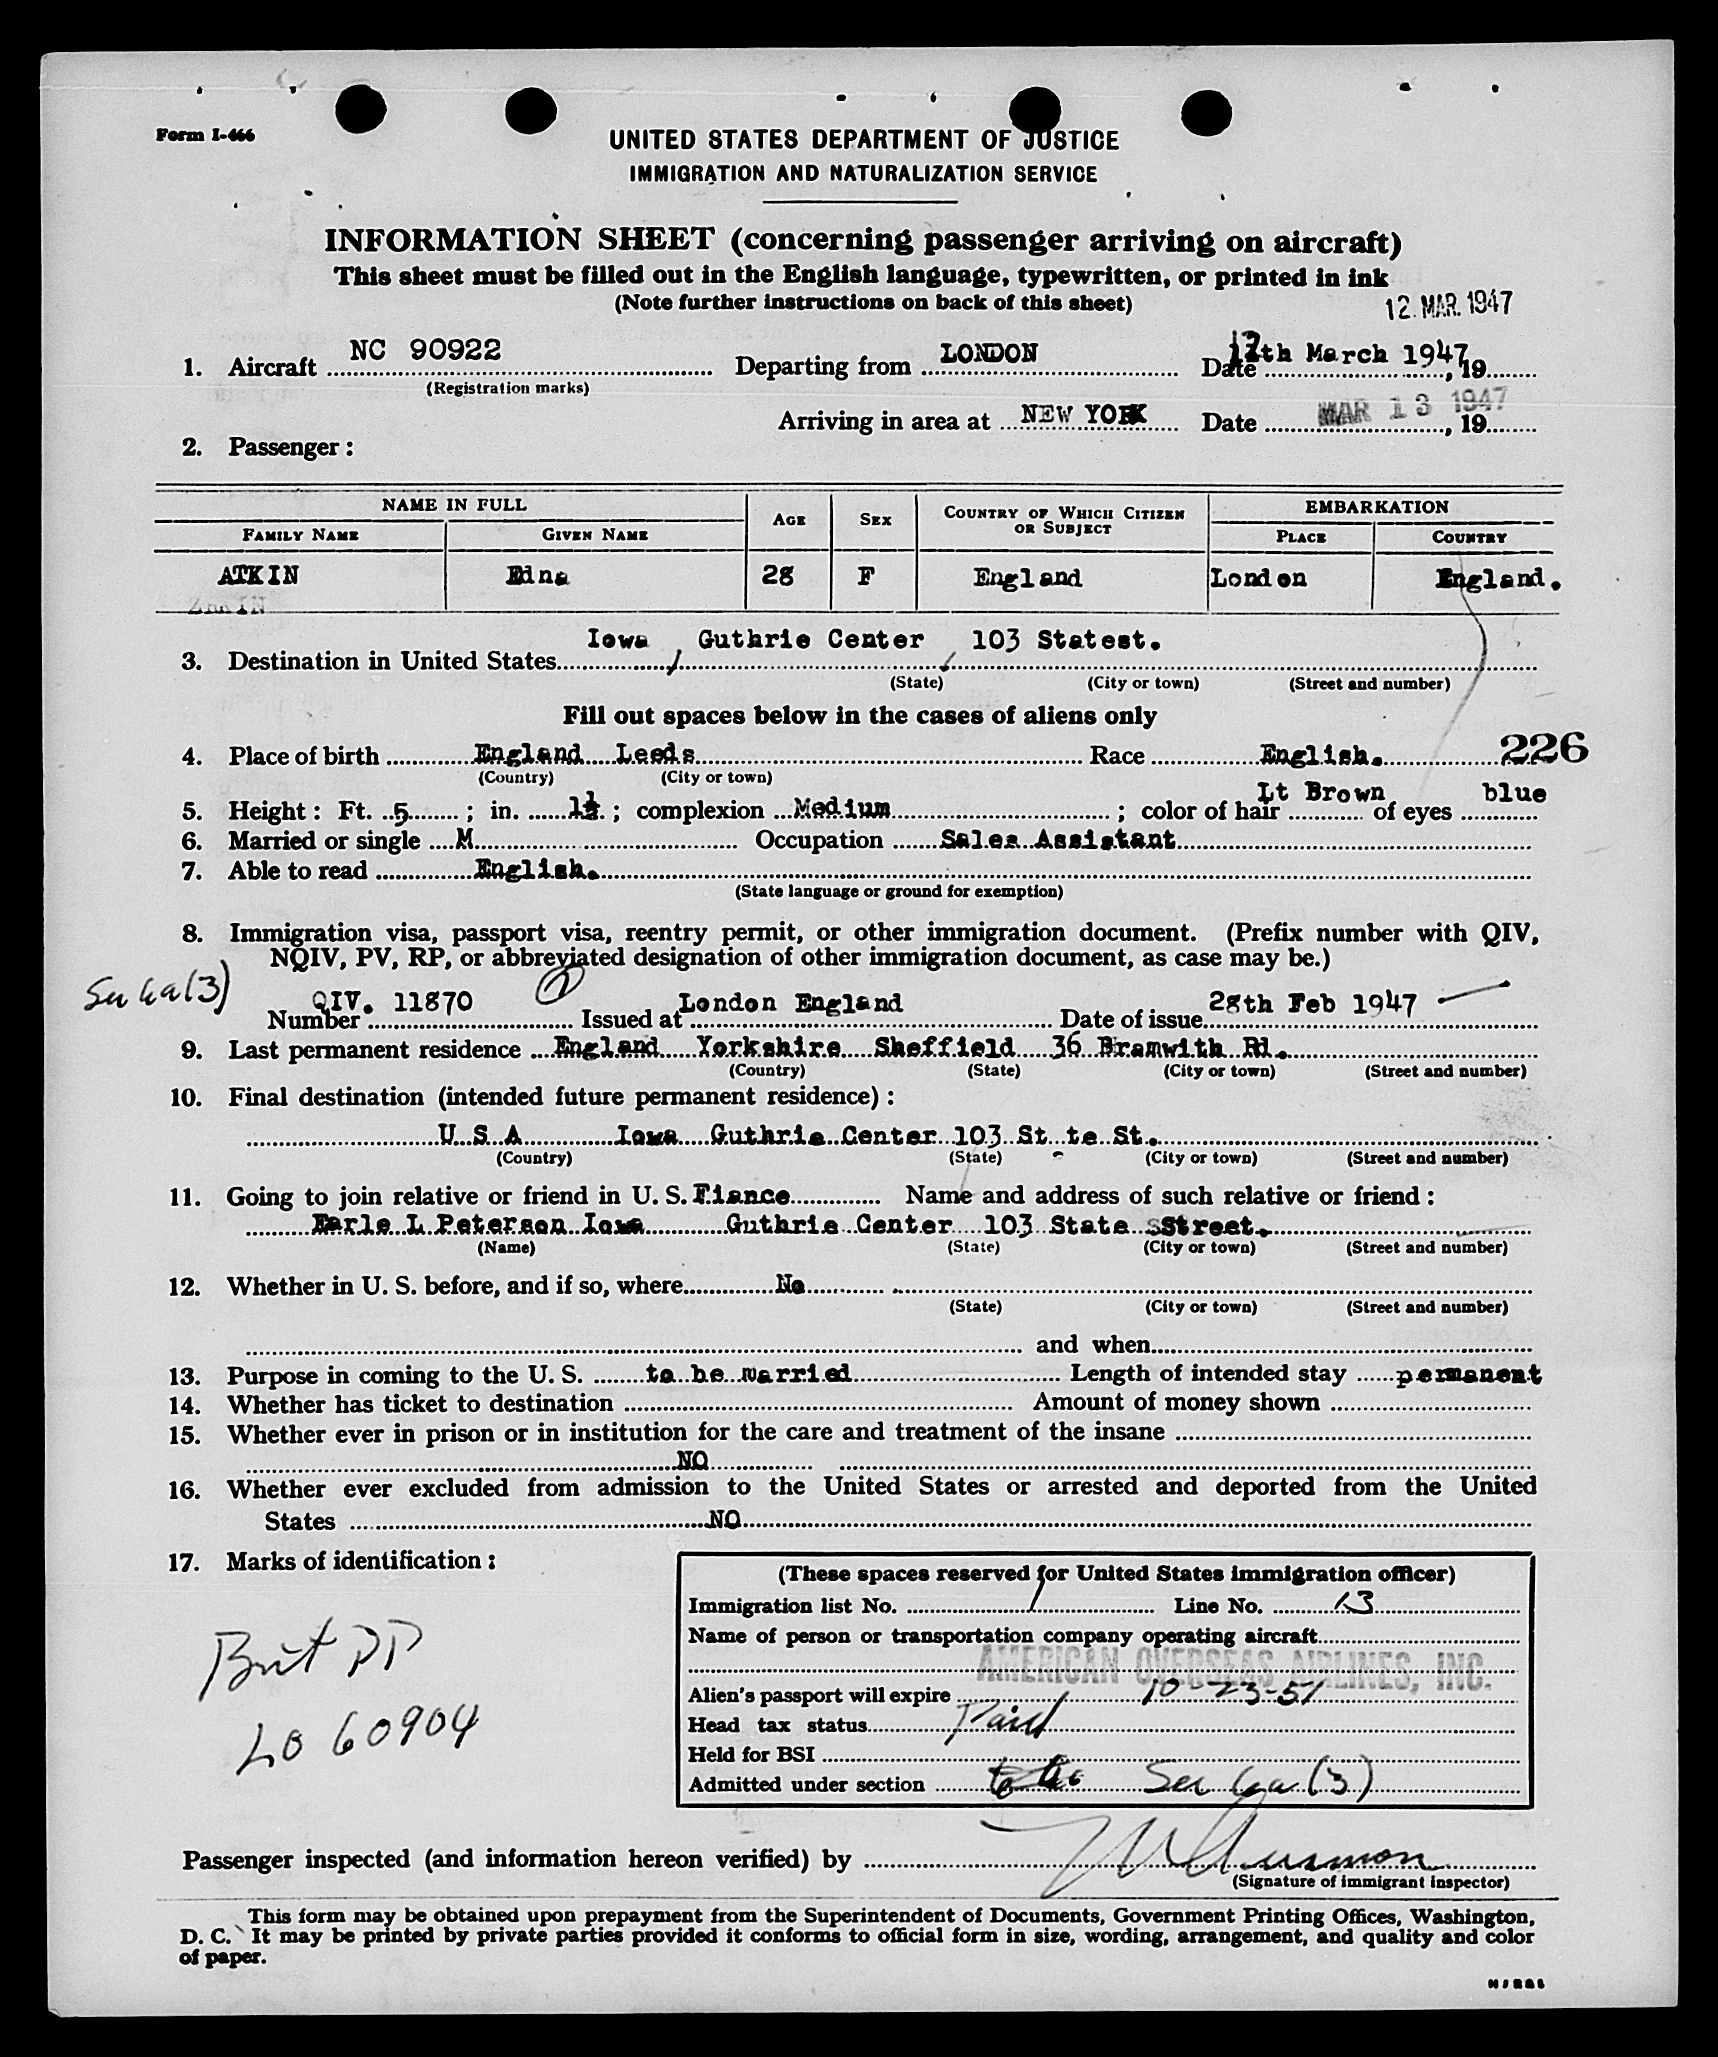 Form I-466
UNITED STATES DEPARTMENT OF JUSTICE
IMMIGRATION AND NATURALIZATION SERVICE
INFORMATION SHEET (concerning passenger arriving on aircraft)
This sheet must be filled out in the English language, typewritten, or printed in ink
(Note further instructions on back of this sheet)
12. MAR. 1947
1. Aircraft NC 90922 Departing from LONDON Date 12th March 1947, 19
(Registration marks)
Arriving in area at NEW YORK Date MAR 13 1947, 19
2. Passenger :
NAME IN FULL AGE SEX COUNTRY OF WHICH CITIZEN OR SUBJECT EMBARKATION
FAMILY NAME GIVEN NAME PLACE COUNTRY
ATKIN Edna 28 F England London England.
Iowa Guthrie Center 103 Statest.
3. Destination in United States
(State) (City or town) (Street and number)
Fill out spaces below in the cases of aliens only
4. Place of birth England Leeds Race English. 226
(Country) (City or town)
5. Height : Ft. 5 ; in. 1½ ; complexion Medium ; color of hair Lt Brown of eyes blue
6. Married or single M Occupation Sales Assistant
7. Able to read English.
(State language or ground for exemption)
8. Immigration visa, passport visa, reentry permit, or other immigration document. (Prefix number with QIV,
NQIV, PV, RP, or abbreviated designation of other immigration document, as case may be.)
Sec 6a(3)
Number QIV. 11870 Issued at London England Date of issue 28th Feb 1947
9. Last permanent residence England Yorkshire Sheffield 36 Bramwith Rd.
(Country) (State) (City or town) (Street and number)
10. Final destination (intended future permanent residence) :
U S A Iowa Guthrie Center 103 St te St.
(Country) (State) (City or town) (Street and number)
11. Going to join relative or friend in U. S. Fiance Name and address of such relative or friend :
Earle L Peterson Iowa Guthrie Center 103 State sStreet.
(Name) (State) (City or town) (Street and number)
12. Whether in U. S. before, and if so, where No
(State) (City or town) (Street and number)
and when
13. Purpose in coming to the U. S. to be married Length of intended stay permanent
14. Whether has ticket to destination Amount of money shown
15. Whether ever in prison or in institution for the care and treatment of the insane
NO
16. Whether ever excluded from admission to the United States or arrested and deported from the United
States NO
17. Marks of identification :
Brit PP
LO 60904
(These spaces reserved for United States immigration officer)
Immigration list No. 1 Line No. 13
Name of person or transportation company operating aircraft
AMERICAN OVERSEAS AIRLINES, INC.
Alien's passport will expire 10-23-51
Head tax status Paid
Held for BSI
Admitted under section Sec 6a (3)
Passenger inspected (and information hereon verified) by
(Signature of immigrant inspector)
This form may be obtained upon prepayment from the Superintendent of Documents, Government Printing Offices, Washington,
D. C. It may be printed by private parties provided it conforms to official form in size, wording, arrangement, and quality and color
of paper.